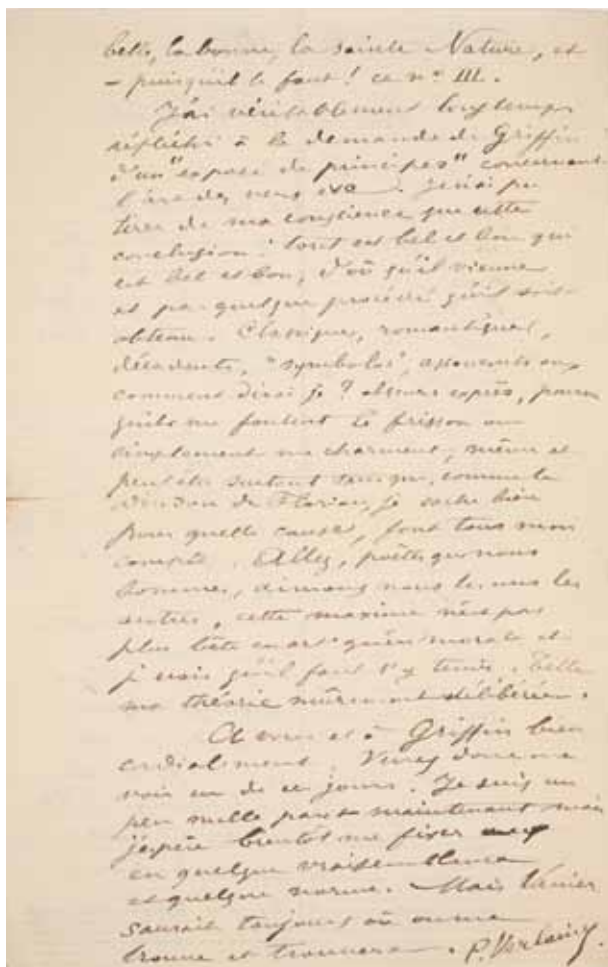 belle, la bonne, la sainte Nature, et
— puisqu'il le faut ! ce n° III.
J'ai véritablement longtemps
réfléchi à la demande de Griffin
d'un "exposé de principes" concernant
l'ère des vers
tirer de ma conscience que cette
conclusion : tout est bel et bon qui
est bel et bon, d'où qu'il vienne
et par quelque procédé qu'il soit
obtenu. Classiques, romantiques,
décadents, "symbolos", assonants ou
comment dirai-je ? obscurs exprès, pourvu
qu'ils me foutent le frisson ou
simplement me charment, même et
peut-être surtout sans que, comme le
dindon de Florian, je sache bien
pour quelle cause, font tous mon
compte. Allez, poètes que nous
sommes, aimons nous les uns les
autres, cette maxime n'est pas
plus bête en art qu'en morale et
je crois qu'il faut s'y tenir. Telle
ma théorie mûrement délibérée.
A vous et à Griffin bien
cordialement. Venez donc me
voir un de ces jours. Je suis un
peu mille pars maintenant mais
j'espère bientôt me fixer
en quelque vraisemblance
et quelque norme. Mais Vanier
saurait toujours où on me
trouve et trouvera. P. Verlaine